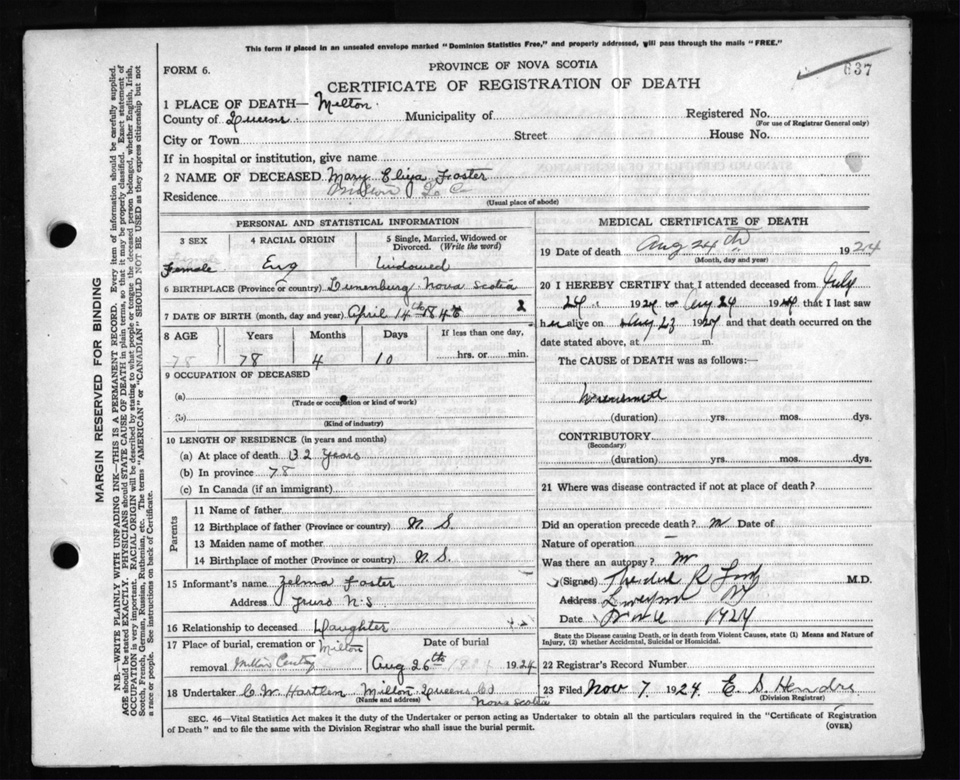 This form if placed in an unsealed envelope marked "Dominion Statistics Free," and properly addressed, will pass through the mails "FREE."
PROVINCE OF NOVA SCOTIA
637
FORM 6.
CERTIFICATE OF REGISTRATION OF DEATH
1 PLACE OF DEATH— Milton
County of Queens Municipality of Registered No.
(For use of Registrar General only)
City or Town Street House No.
If in hospital or institution, give name
2 NAME OF DECEASED Mary Eliza Foster
Residence Milton Q. Co
(Usual place of abode)
MARGIN RESERVED FOR BINDING
N.B.—WRITE PLAINLY WITH UNFADING INK—THIS IS A PERMANENT RECORD. Every item of information should be carefully supplied.
AGE should be stated EXACTLY. PHYSICIANS should STATE CAUSE OF DEATH in plain terms, so that it may be properly classified. Exact statement of
OCCUPATION is very important. RACIAL ORIGIN will be described by stating to what people or tongue the deceased person belonged, whether English, Irish,
Scotch, French, German, Russian, Ruthenian, etc. The terms "AMERICAN" or "CANADIAN" SHOULD NOT BE USED as they express citizenship but not
a race or people. See instructions on back of Certificate.
PERSONAL AND STATISTICAL INFORMATION
3 SEX
Female
4 RACIAL ORIGIN
Eng
5 Single, Married, Widowed or Divorced. (Write the word)
Widowed
6 BIRTHPLACE (Province or country) Lunenburg Nova Scotia
7 DATE OF BIRTH (month, day and year) April 14th 1846 2
8 AGE Years Months Days If less than one day,
78 78 4 10 hrs. or min.
9 OCCUPATION OF DECEASED
(a)
(Trade or occupation or kind of work)
(b)
(Kind of industry)
10 LENGTH OF RESIDENCE (in years and months)
(a) At place of death 32 years
(b) In province 78
(c) In Canada (if an immigrant)
Parents
11 Name of father
12 Birthplace of father (Province or country) N. S.
13 Maiden name of mother
14 Birthplace of mother (Province or country) N. S.
15 Informant's name Zelma Foster
Address Truro N.S
16 Relationship to deceased Daughter
17 Place of burial, cremation or removal Milton
Date of burial
Aug 26th 1924
18 Undertaker C. W. Hartlen Milton Queens Co
(Name and address) Nova Scotia
MEDICAL CERTIFICATE OF DEATH
19 Date of death Aug 24th 1924
(Month, day and year)
20 I HEREBY CERTIFY that I attended deceased from July
24 1924 to Aug 24 1924, that I last saw
her alive on Aug 23 1924 and that death occurred on the
date stated above, at m.
The CAUSE of DEATH was as follows:—
(duration) yrs. mos. dys.
CONTRIBUTORY
(Secondary)
(duration) yrs. mos. dys.
21 Where was disease contracted if not at place of death?
Did an operation precede death? Date of
Nature of operation
Was there an autopsy?
(Signed) M.D.
Address
Date 1924
State the Disease causing Death, or in death from Violent Causes, state (1) Means and Nature of
Injury, (2) whether Accidental, Suicidal or Homicidal.
22 Registrar's Record Number
23 Filed Nov 7 1924. E. S.
(Division Registrar)
SEC. 46—Vital Statistics Act makes it the duty of the Undertaker or person acting as Undertaker to obtain all the particulars required in the "Certificate of Registration
of Death" and to file the same with the Division Registrar who shall issue the burial permit. (OVER)